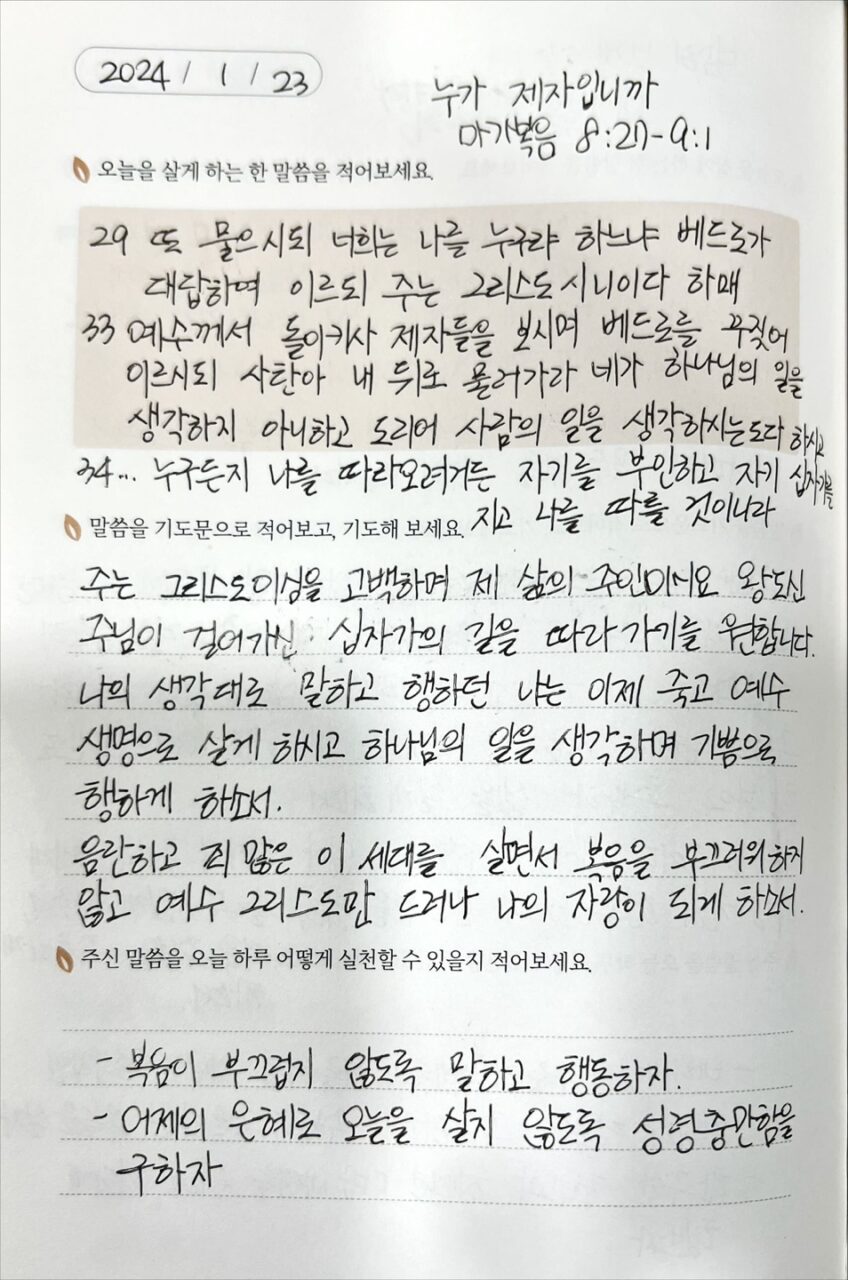 2024 / 1 / 23
누가 제자입니까
마가복음 8:27-9:1
오늘을 살게 하는 한 말씀을 적어보세요.
29 또 물으시되 너희는 나를 누구랴 하느냐 베드로가
대답하여 이르되 주는 그리스도시니이다 하매
33 예수께서 돌이키사 제자들을 보시며 베드로를 꾸짖어
이르시되 사탄아 내 뒤로 물러가라 네가 하나님의 일을
생각하지 아니하고 도리어 사람의 일을 생각하시는도다 하시고
34... 누구든지 나를 따라오려거든 자기를 부인하고 자기 십자가를
지고 나를 따를 것이니라
말씀을 기도문으로 적어보고, 기도해 보세요.
주는 그리스도이심을 고백하며 제 삶의 주인이시요 왕되신
주님이 걸어가신 십자가의 길을 따라가기를 원합니다.
나의 생각대로 말하고 행하던 나는 이제 죽고 예수
생명으로 살게 하시고 하나님의 일을 생각하며 기쁨으로
행하게 하소서.
음란하고 죄 많은 이 세대를 살면서 복음을 부끄러워하지
않고 예수 그리스도만 드러나 나의 자랑이 되게 하소서.
주신 말씀을 오늘 하루 어떻게 실천할 수 있을지 적어보세요.
- 복음이 부끄럽지 않도록 말하고 행동하자.
- 어제의 은혜로 오늘을 살지 않도록 성령충만함을
구하자